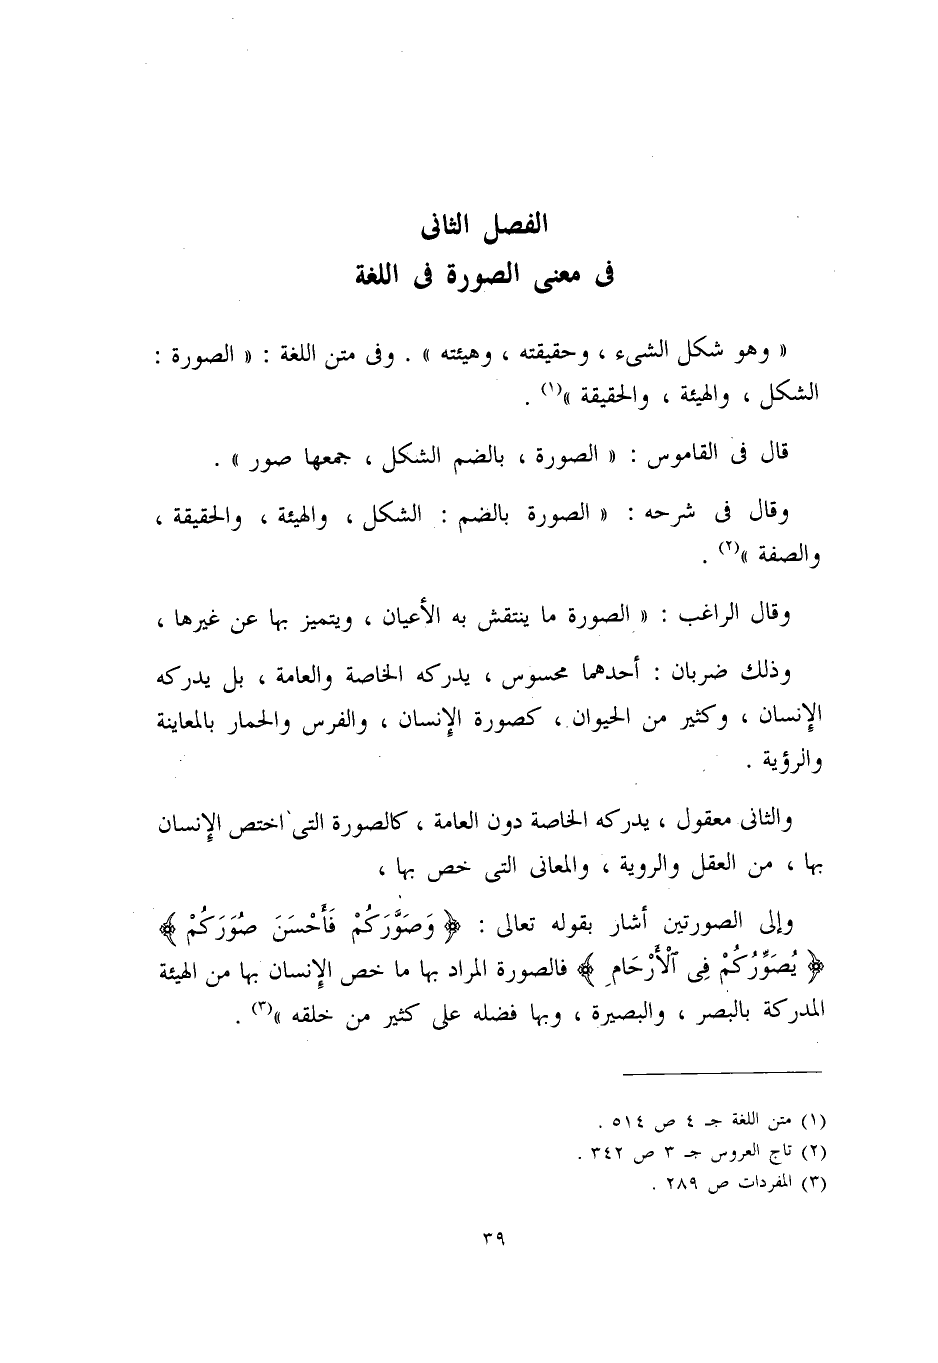 الفصل الثانى
فى معنى الصورة فى اللغة
« وهو شكل الشىء ، وحقيقته ، وهيئته » . وفى متن اللغة : « الصورة :
الشكل ، والهيئة ، والحقيقة »(١) .
قال فى القاموس : « الصورة ، بالضم الشكل ، جمعها صور » .
وقال فى شرحه : « الصورة بالضم : الشكل ، والهيئة ، والحقيقة ،
والصفة »(٢) .
وقال الراغب : « الصورة ما ينتقش به الأعيان ، ويتميز بها عن غيرها ،
وذلك ضربان : أحدهما محسوس ، يدركه الخاصة والعامة ، بل يدركه
الإنسان ، وكثير من الحيوان ، كصورة الإنسان ، والفرس والحمار بالمعاينة
والرؤية .
والثانى معقول ، يدركه الخاصة دون العامة ، كالصورة التى اختص الإنسان
بها ، من العقل والروية ، والمعانى التى خص بها ،
وإلى الصورتين أشار بقوله تعالى : ﴿ وَصَوَّرَكُمْ فَأَحْسَنَ صُوَرَكُمْ ﴾
﴿ يُصَوِّرُكُمْ فِى ٱلْأَرْحَامِ ﴾ فالصورة المراد بها ما خص الإنسان بها من الهيئة
المدركة بالبصر ، والبصيرة ، وبها فضله على كثير من خلقه »(٣) .
(١) متن اللغة جـ ٤ ص ٥١٤ .
(٢) تاج العروس جـ ٣ ص ٣٤٢ .
(٣) المفردات ص ٢٨٩ .
٣٩